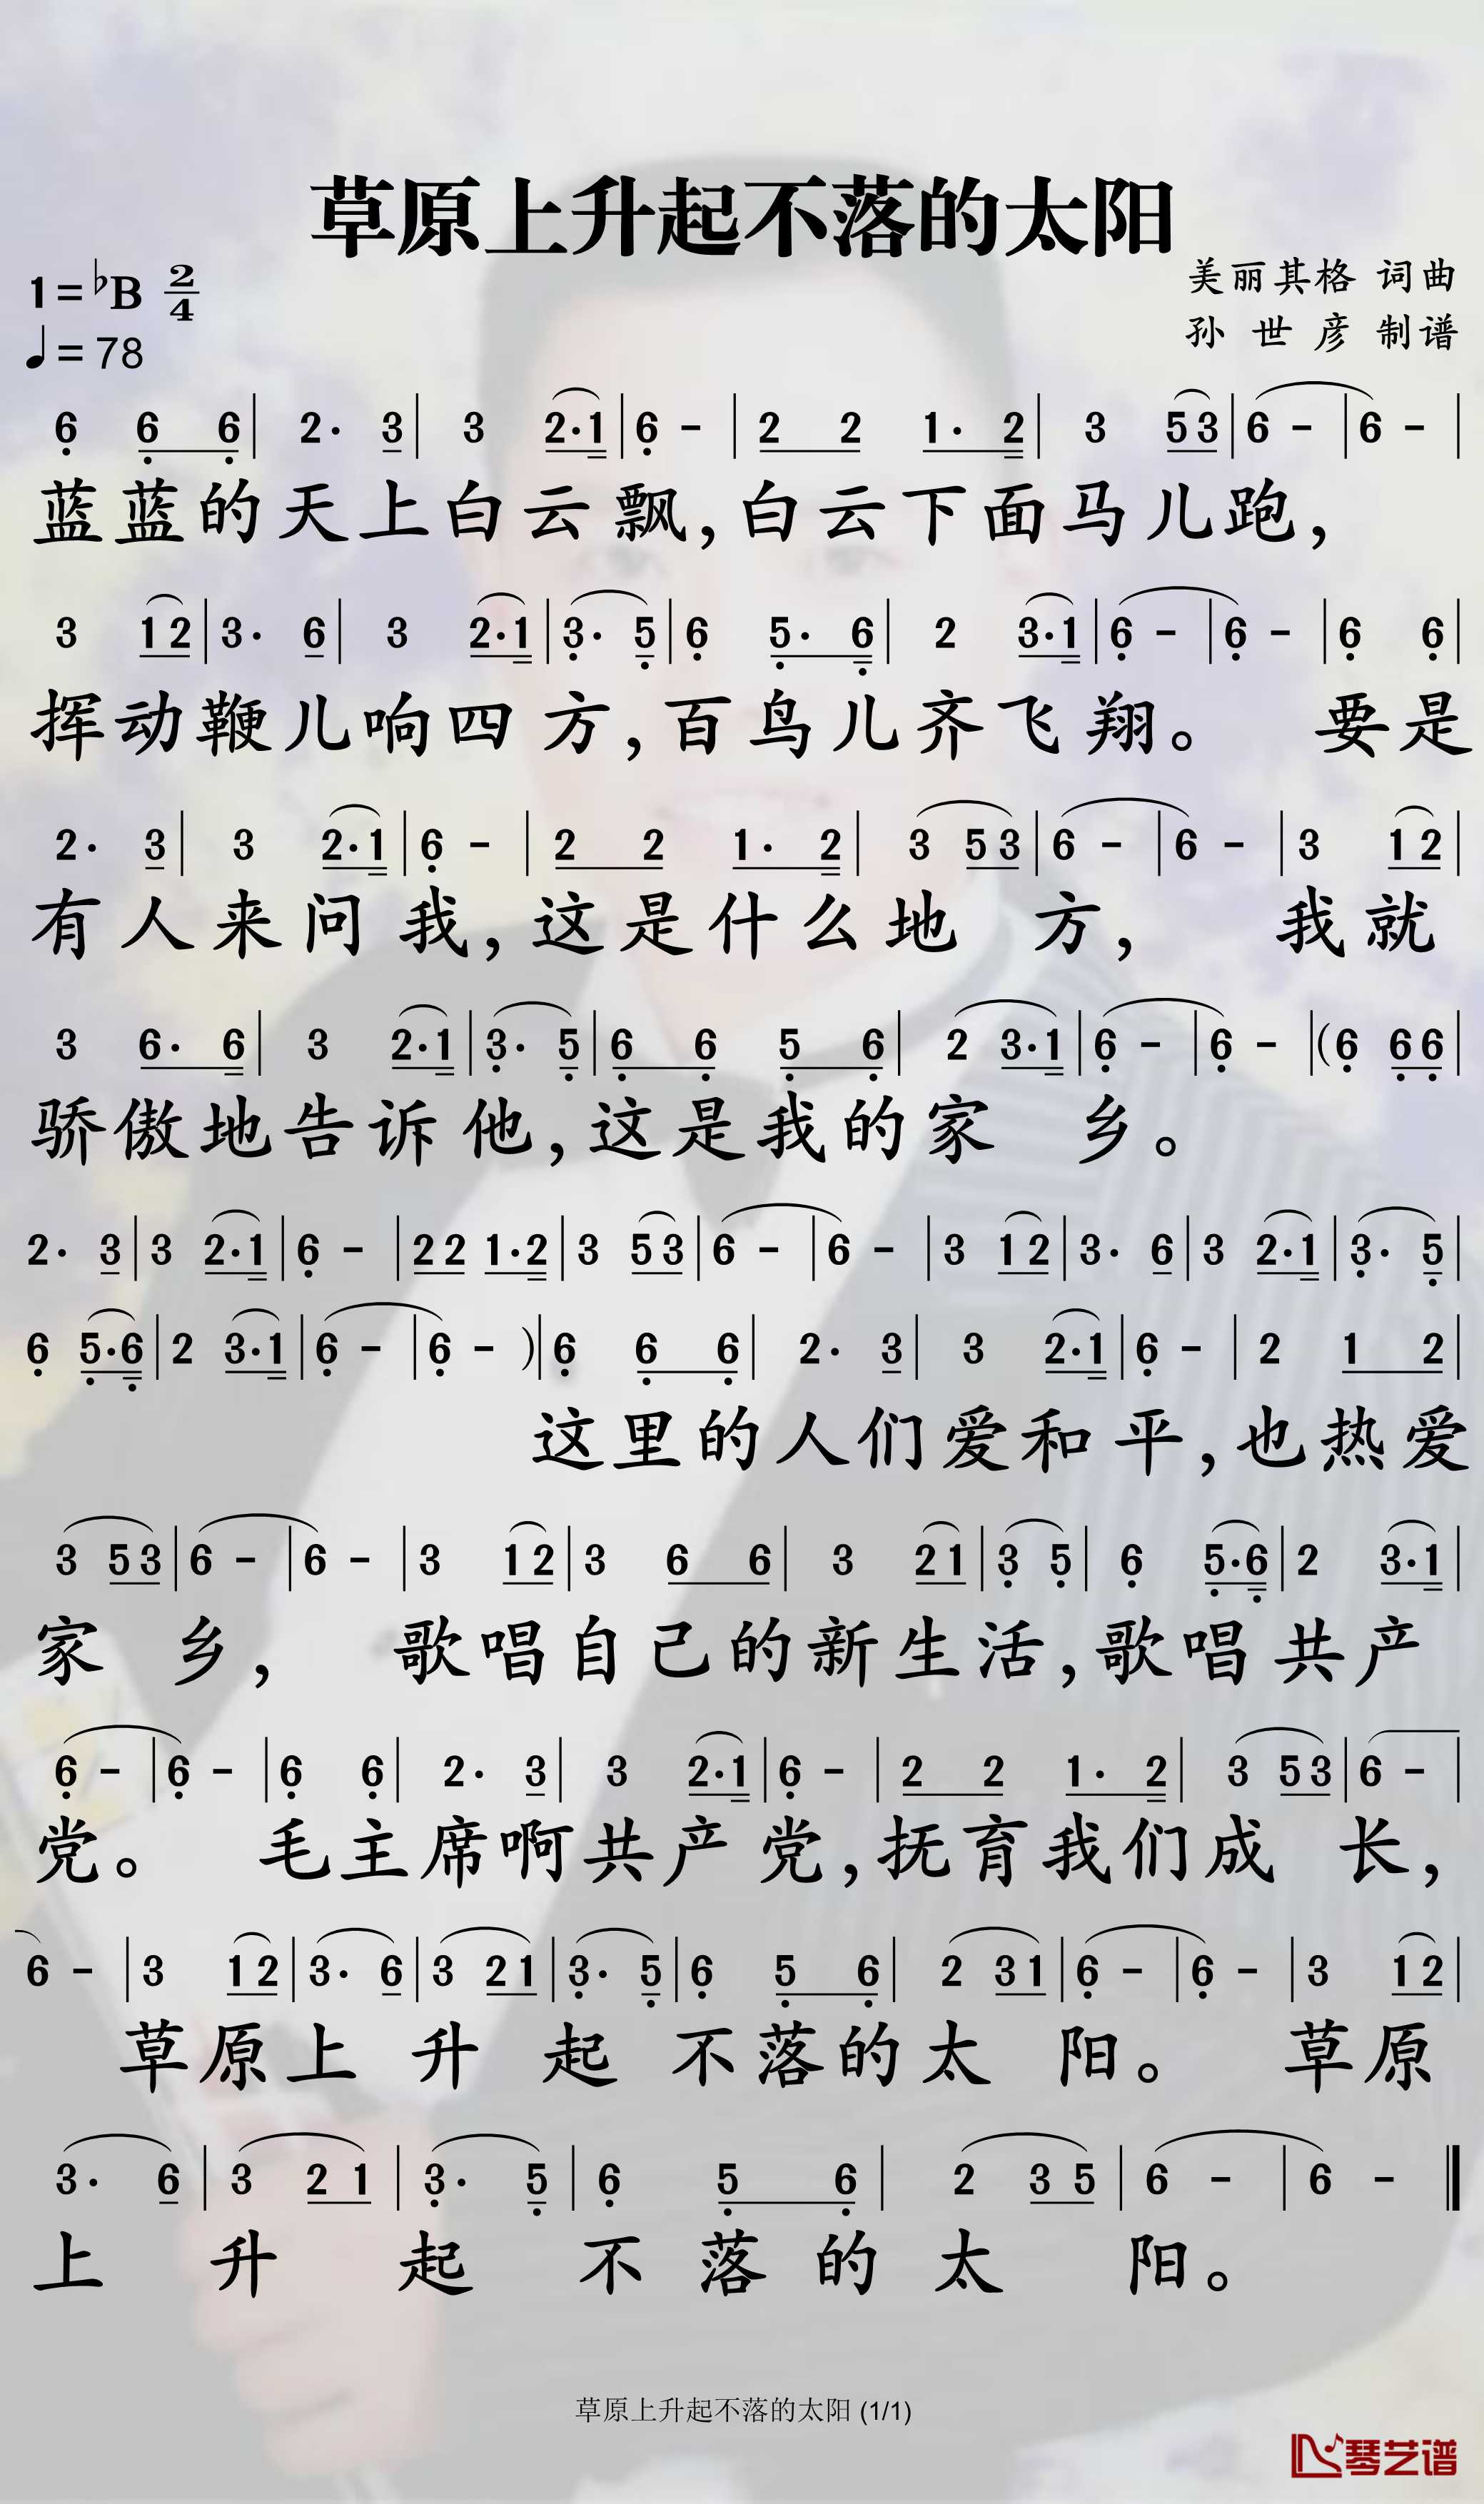 草原上升起不落的太阳
1=♭B 2/4
美丽其格 词曲
♩=78
孙世彦 制谱
6 6 6 | 2· 3 | 3 2·1 | 6 - | 2 2 1· 2 | 3 5 3 | 6 - | 6 - |
蓝蓝的天上白云飘,白云下面马儿跑,
3 1 2 | 3· 6 | 3 2·1 | 3· 5 | 6 5· 6 | 2 3·1 | 6 - | 6 - | 6 6 |
挥动鞭儿响四方,百鸟儿齐飞翔。 要是
2· 3 | 3 2·1 | 6 - | 2 2 1· 2 | 3 5 3 | 6 - | 6 - | 3 1 2 |
有人来问我,这是什么地方, 我就
3 6· 6 | 3 2·1 | 3· 5 | 6 6 5 6 | 2 3·1 | 6 - | 6 - | (6 6 6 |
骄傲地告诉他,这是我的家乡。
2· 3 | 3 2·1 | 6 - | 2 2 1·2 | 3 5 3 | 6 - | 6 - | 3 1 2 | 3· 6 | 3 2·1 | 3· 5 |
6 5·6 | 2 3·1 | 6 - | 6 - )| 6 6 6 | 2· 3 | 3 2·1 | 6 - | 2 1 2 |
这里的人们爱和平,也热爱
3 5 3 | 6 - | 6 - | 3 1 2 | 3 6 6 | 3 2 1 | 3 5 | 6 5·6 | 2 3·1 |
家乡, 歌唱自己的新生活,歌唱共产
6 - | 6 - | 6 6 | 2· 3 | 3 2·1 | 6 - | 2 2 1· 2 | 3 5 3 | 6 - |
党。 毛主席啊共产党,抚育我们成长,
6 - | 3 1 2 | 3· 6 | 3 2 1 | 3· 5 | 6 5 6 | 2 3 1 | 6 - | 6 - | 3 1 2 |
草原上升起不落的太阳。 草原
3· 6 | 3 2 1 | 3· 5 | 6 5 6 | 2 3 5 | 6 - | 6 - ‖
上升起不落的太阳。
草原上升起不落的太阳 (1/1)
琴艺谱